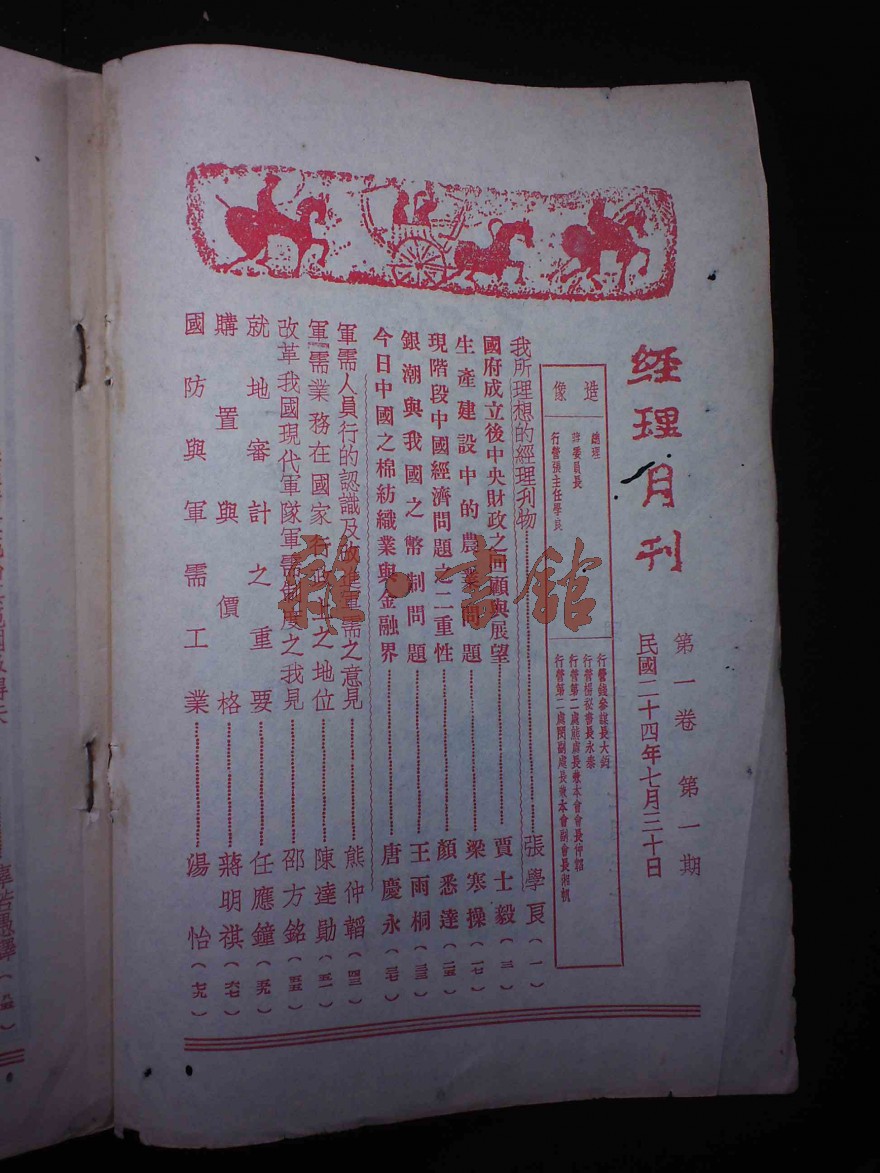 經理月刊
第一卷 第一期
民國二十四年七月三十日
造像
總理
蔣委員長
行營張主任學良
行營錢參謀長大鈞
行營楊秘書長永泰
行營第二處熊處長兼本會會長仲韜
行營第二處閔副處長兼本會副會長湘帆
我所理想的經理刊物 張學良（一）
國府成立後中央財政之回顧與展望 賈士毅（三）
生產建設中的農業問題 梁寒操（一七）
現階段中國經濟問題之二重性 顏悉達（二五）
銀潮與我國之幣制問題 王雨桐（三三）
今日中國之棉紡織業與金融界 唐慶永（三七）
軍需人員行的認識及改進軍需之意見 熊仲韜（四三）
軍需業務在國家行政上之地位 陳達勛（五一）
改革我國現代軍隊軍需制度之我見 邵方銘（五五）
就地審計之重要 任應鐘（五九）
購置與價格 蔣明祺（六七）
國防與軍需工業 湯怡（七九）
雜·書館